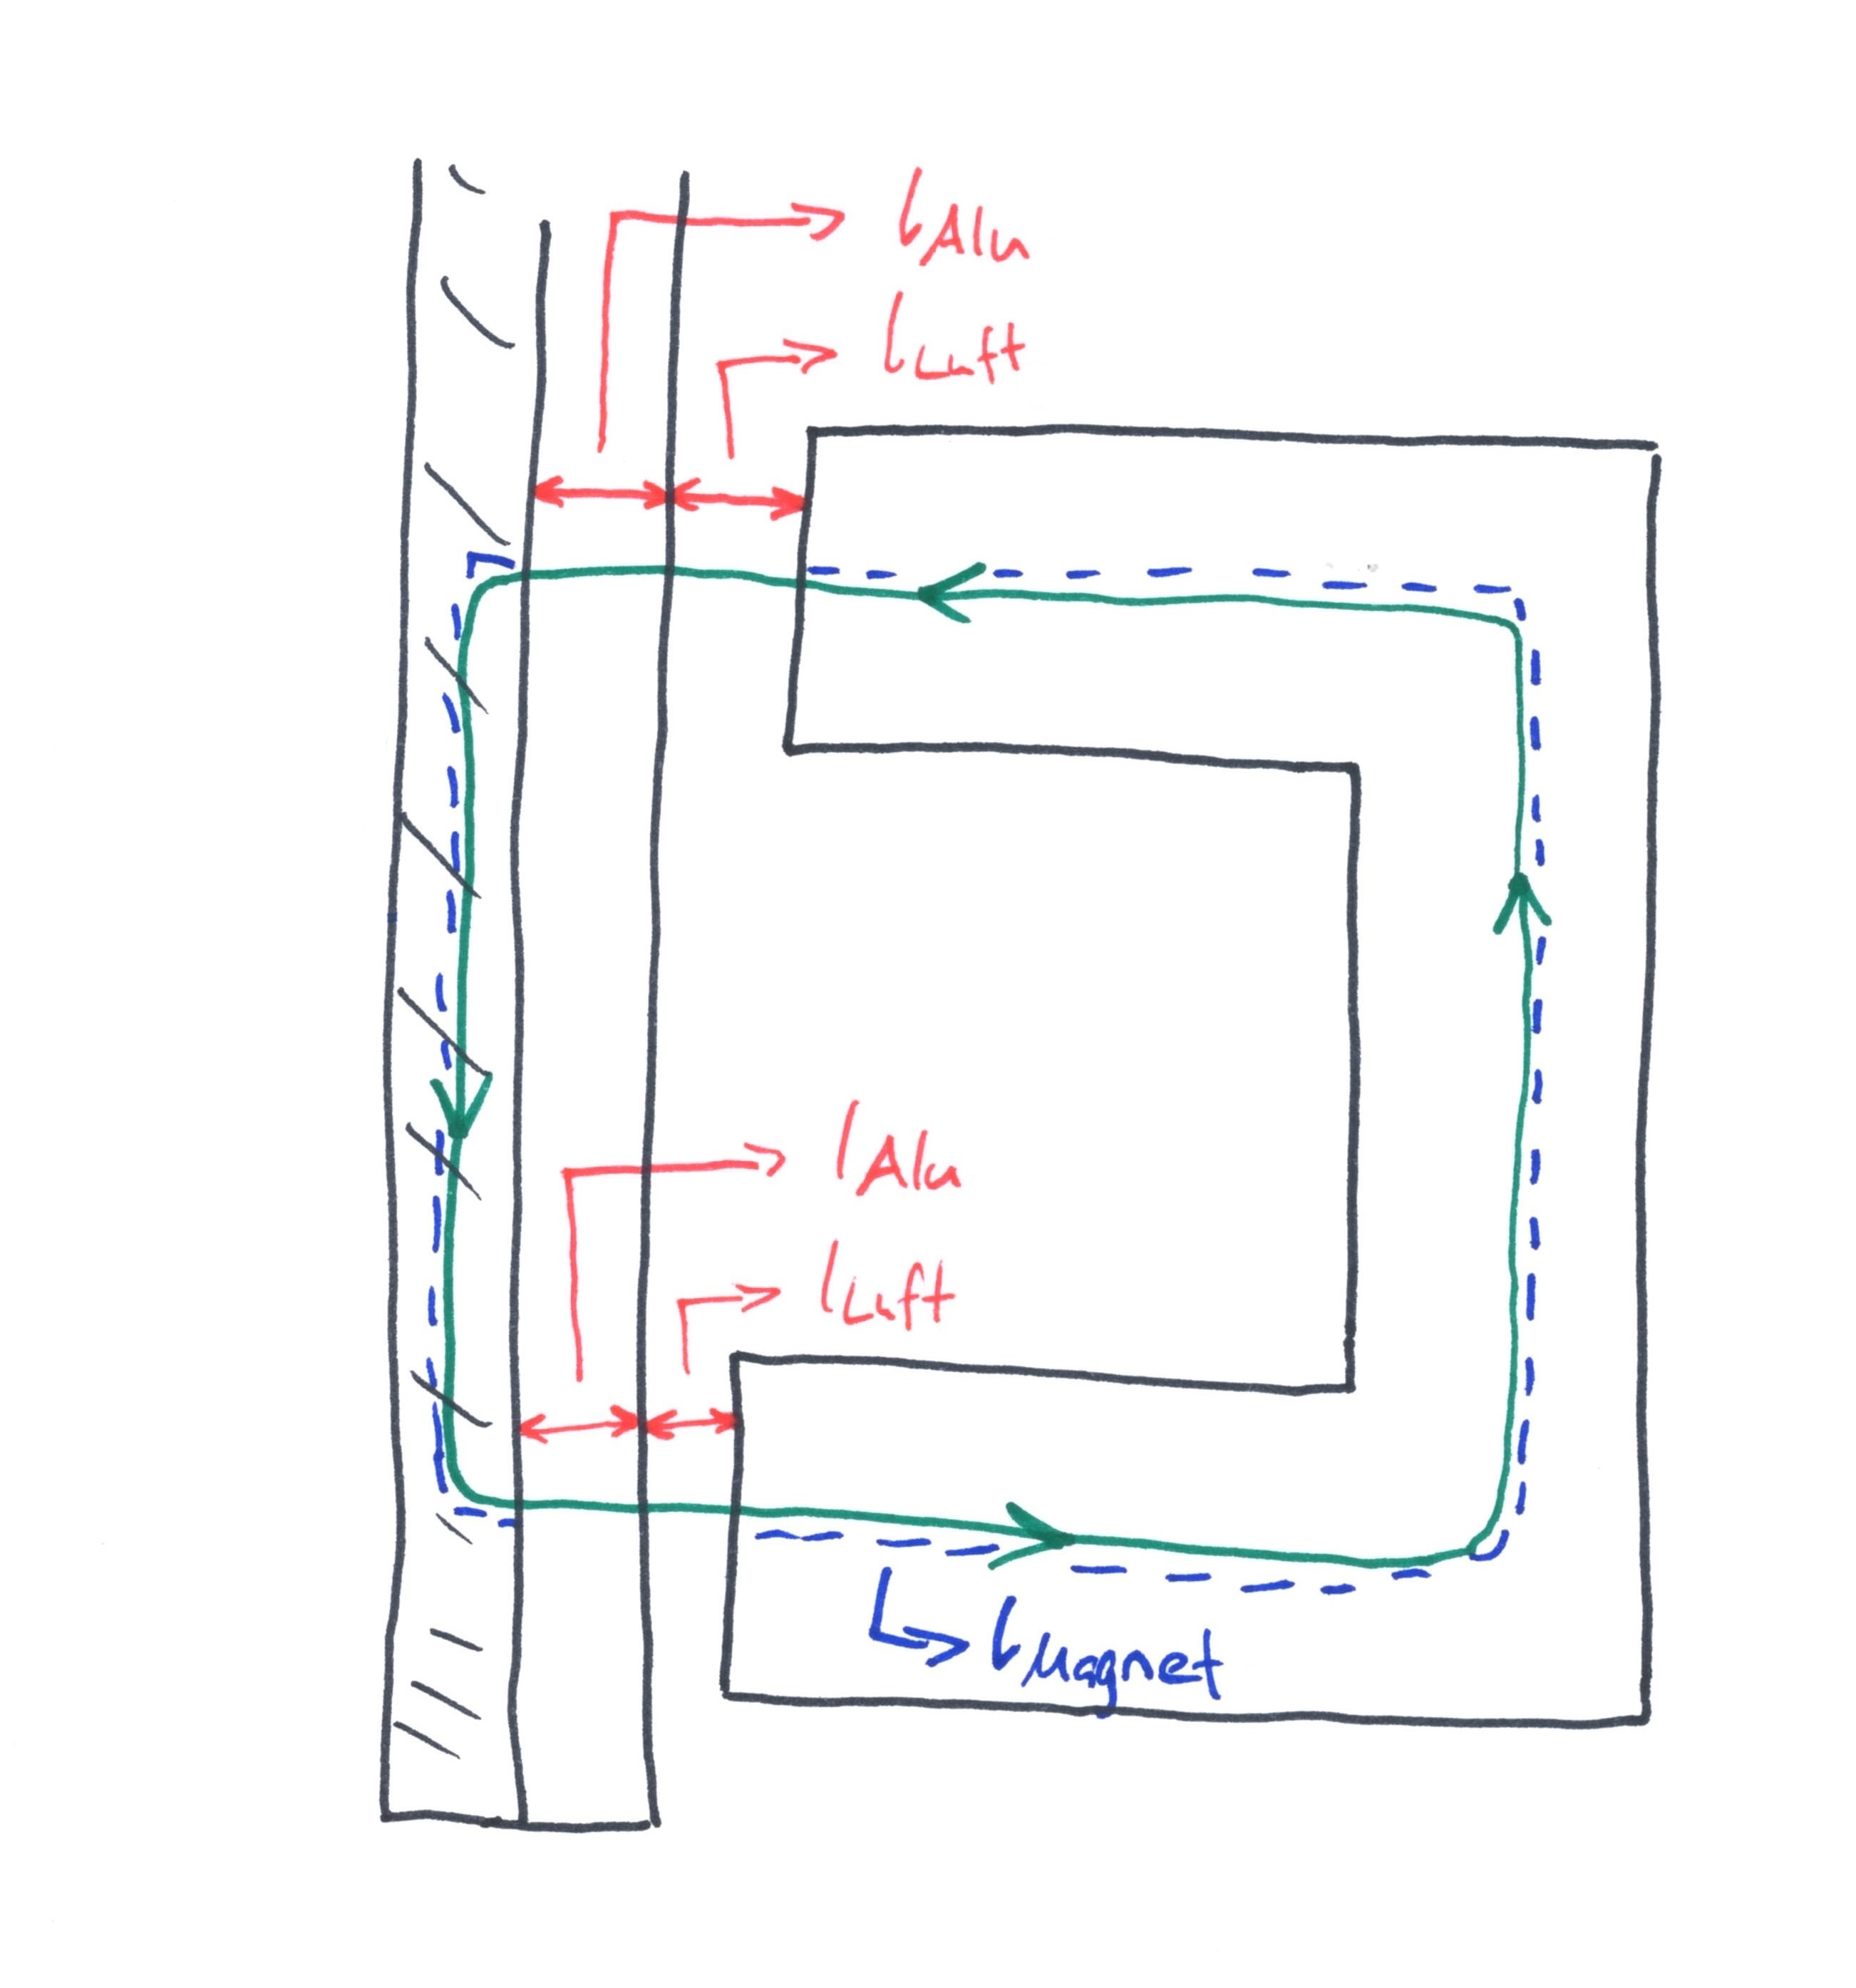 lAlu
lLuft
lAlu
lLuft
lMagnet